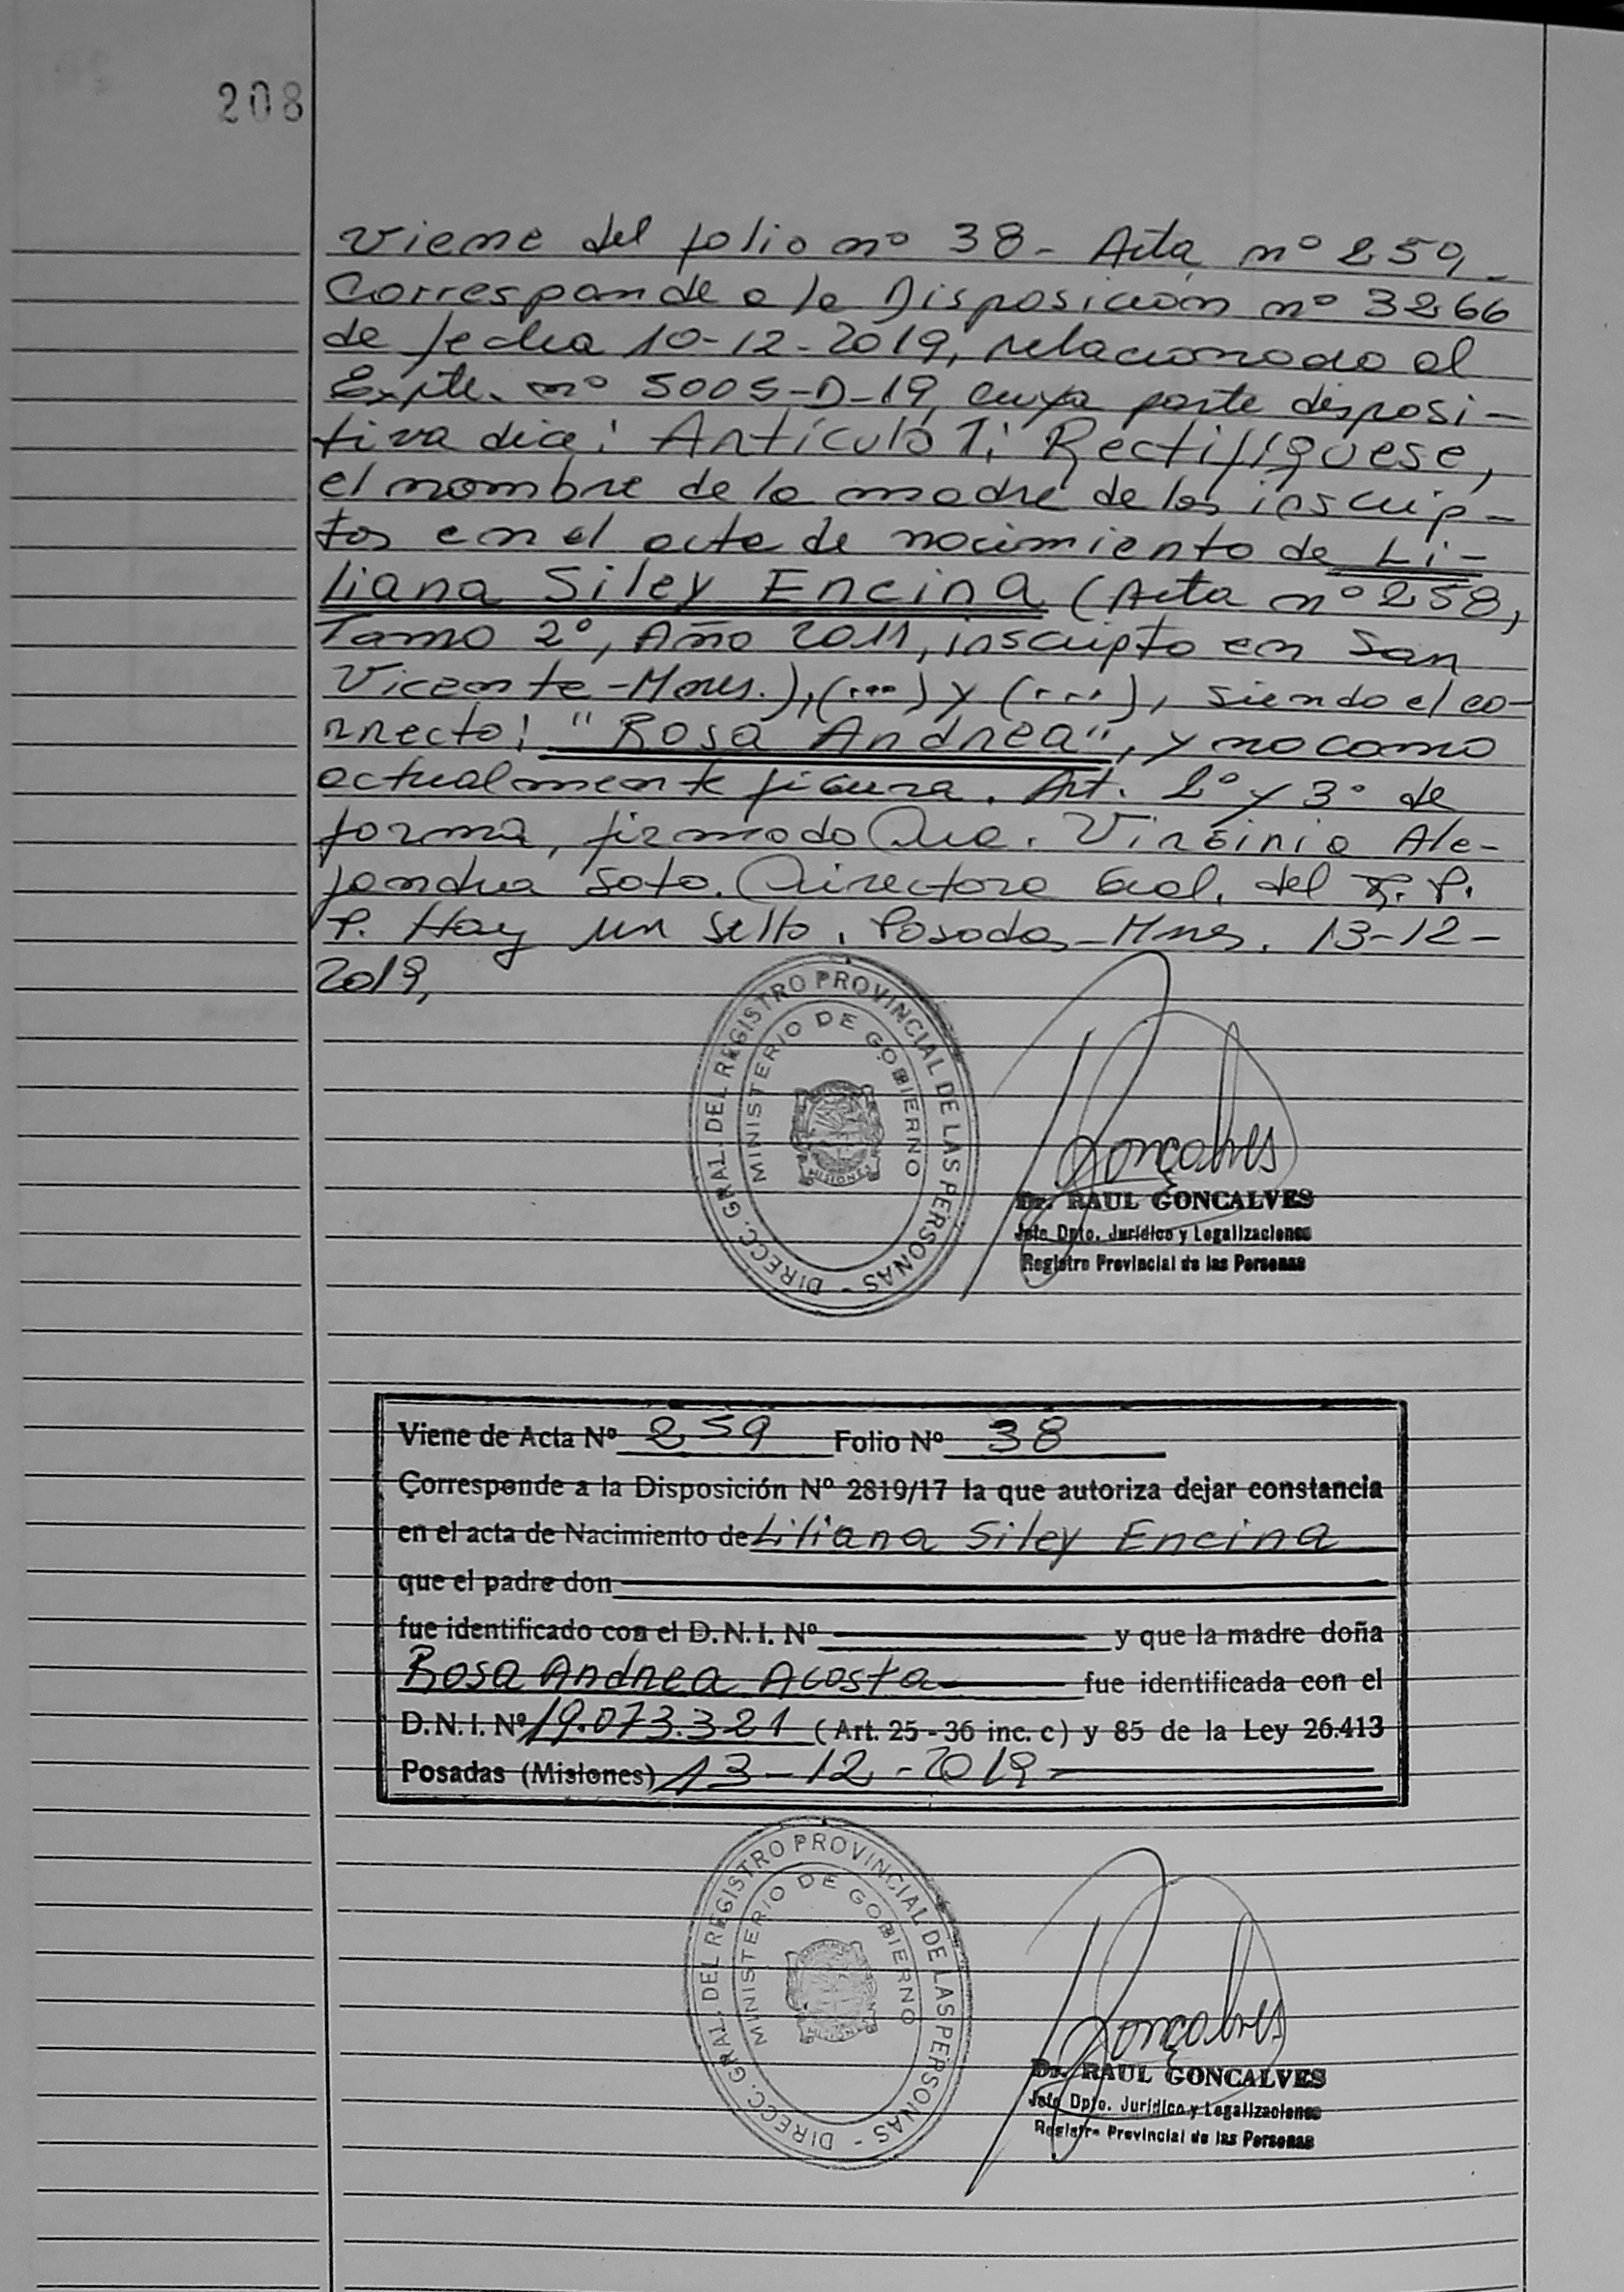 208
Viene del folio nº 38 - Acta nº 259.
Corresponde a la Disposición nº 3266
de fecha 10-12-2019, relacionado al
Expte. nº 5005-D-19, cuya parte disposi-
tiva dice: Artículo 1: Rectifíquese,
el nombre de la madre de los inscrip-
tos en el acta de nacimiento de Li-
liana Siley Encina (Acta nº 258,
Tomo 2º, Año 2011, inscripto en San
Vicente-Mnes.), (...) y (...), siendo el co-
rrecto: "Rosa Andrea", y no como
actualmente figura. Art. 2º y 3º de
forma, firmado Dra. Virginia Ale-
jandra Soto. Directora Gral. del R. P.
P. Hay un sello. Posadas-Mnes. 13-12-
2019,
DIRECC. GRAL. DEL REGISTRO PROVINCIAL DE LAS PERSONAS -
MINISTERIO DE GOBIERNO
MISIONES
Gonçalves
Dr. RAUL GONCALVES
Jefe Dpto. Jurídico y Legalizaciones
Registro Provincial de las Personas
Viene de Acta Nº 259 Folio Nº 38
Corresponde a la Disposición Nº 2819/17 la que autoriza dejar constancia
en el acta de Nacimiento de Liliana Siley Encina
que el padre don
fue identificado con el D.N.I. Nº y que la madre doña
Rosa Andrea Acosta fue identificada con el
D.N.I. Nº 19.073.321 (Art. 25 - 36 inc. c) y 85 de la Ley 26.413
Posadas (Misiones) 13-12-2019
DIRECC. GRAL. DEL REGISTRO PROVINCIAL DE LAS PERSONAS -
MINISTERIO DE GOBIERNO
Gonçalves
Dr. RAUL GONCALVES
Jefe Dpto. Jurídico y Legalizaciones
Registro Provincial de las Personas